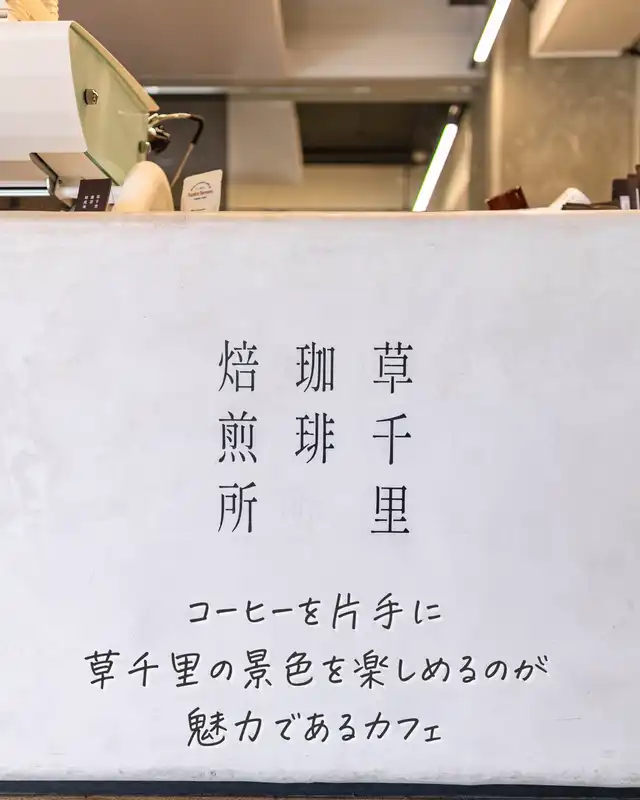 草千里
珈琲
焙煎所
コーヒーを片手に
草千里の景色を楽しめるのが
魅力であるカフェ